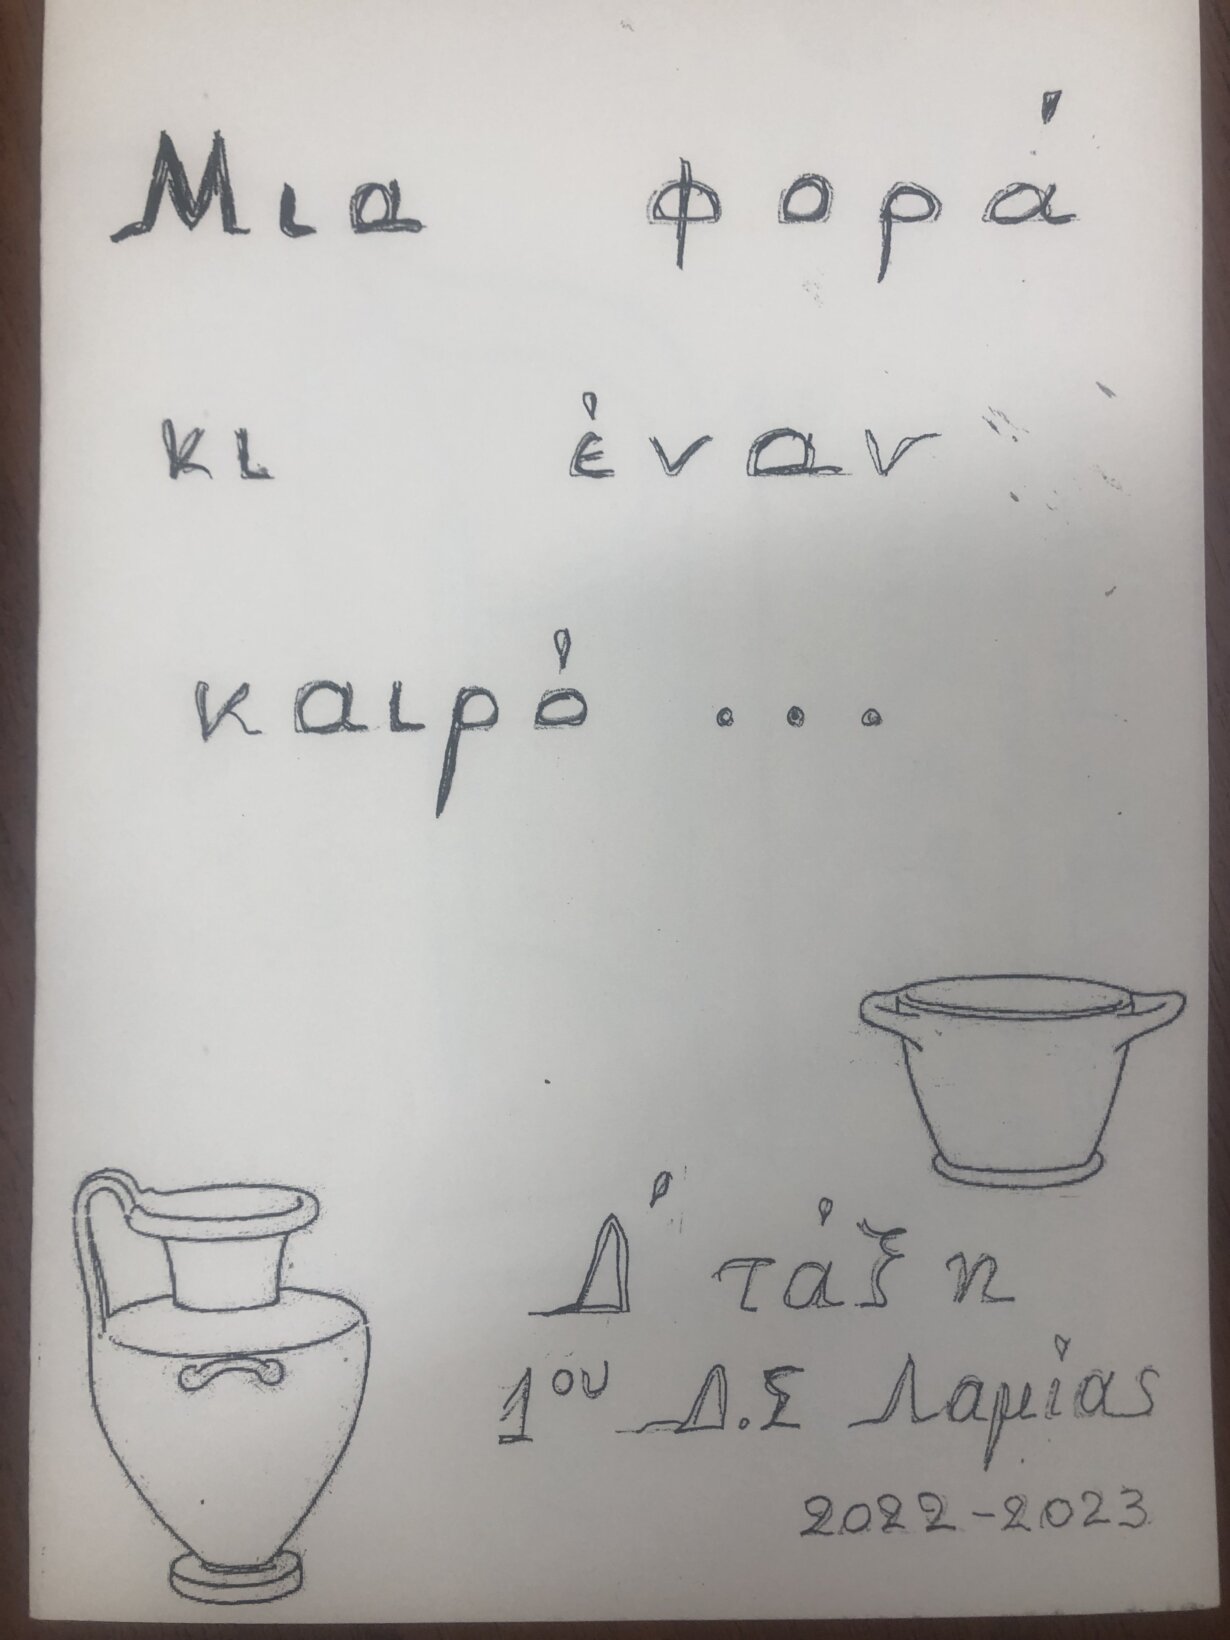 Μια φορά
κι έναν
καιρό ...
Δ' τάξη
1ου Δ.Σ Λαμίας
2022-2023